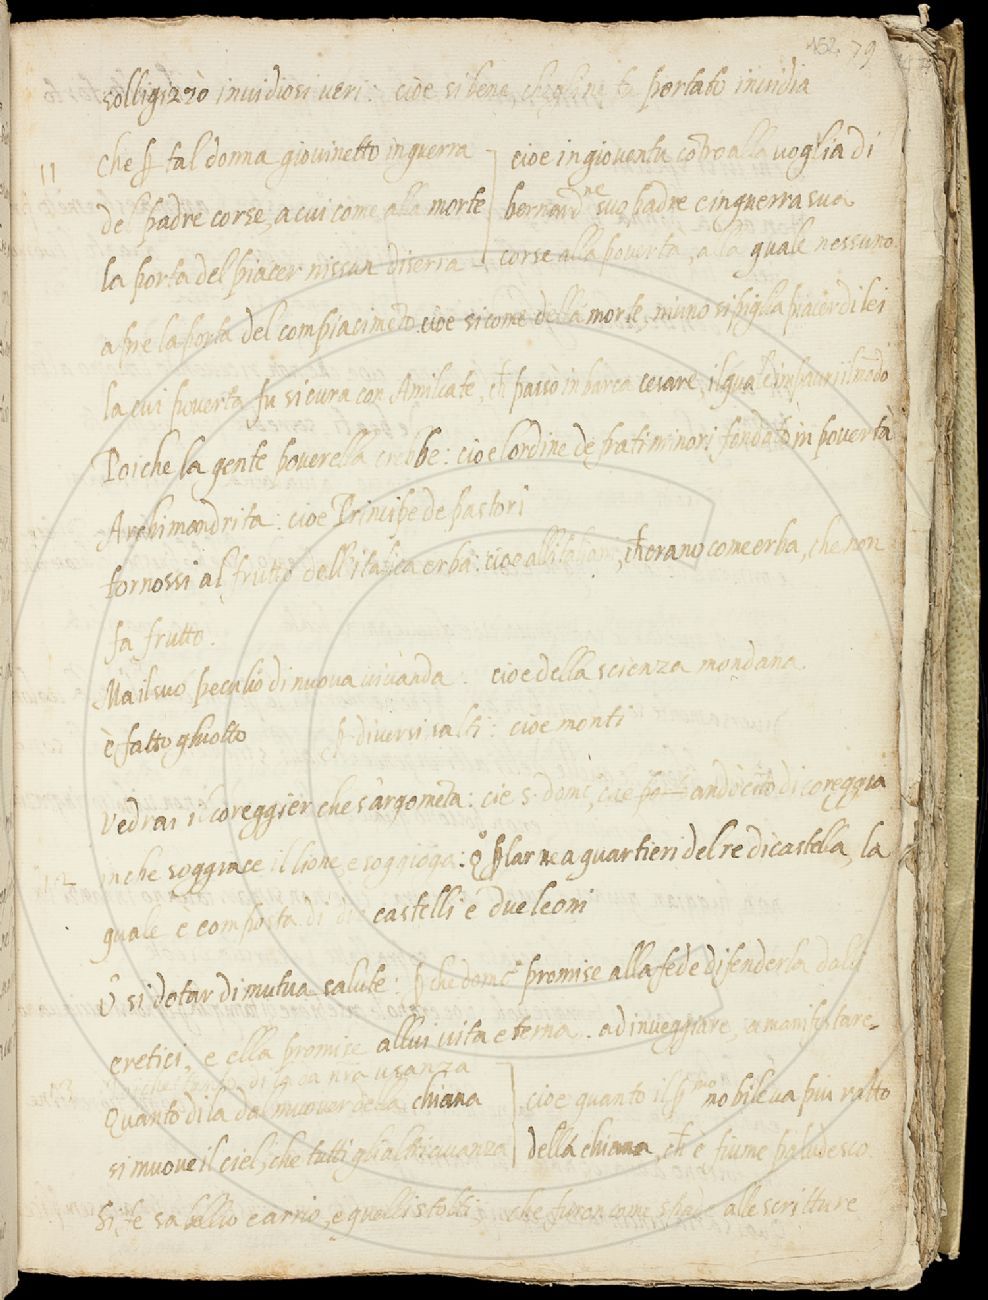 152. 79
sollogizzò invidiosi veri: cioè si bene, che gline fu portato invidia
11 che ꝑ tal donna giovinetto in guerra ] cioe in gioventu cōtro alla voglia di
del padre corse, a cui come alla morte bernardne suo padre e in guerra sua
la porta del piacer nissun diserra corse alla poverta, alla quale nessuno
apre la porta del compiacimēto cioe si come della morte, niuno si piglia piacer di lei
la cui poverta fu sicura con Amilcate, ch̄ passò in barca cesare, il quale impaurì il mōdo
Poiche la gente poverella crebbe: cioe l'ordine de frati minori fondato in povertà
Archimandrita: cioe Principe de pastori
tornossi al frutto dell'italica erba: cioe all'italiani, ch̄ erano come erba, che non
fa frutto.
Ma il suo peculio di nuova vivanda: cioe della scienza mondana
è fatto ghiotto ꝑ diversi salti: cioe monti
Vedrai il coreggier che s'argomēta: cie s. domc, andò cīto di coreggia
12 in che soggiace il lione, e soggioga: ꝑ l'arme a quartieri del re di castella, la
quale e composta di due castelli e due leoni
V si dotar di mutua salute: ꝑche domc̄ promise alla fede difenderla dalli
eretici, e ella promise allui vita eterna. ad inveggiare, a manifestare.
13 di la da nra usanza
Quanto di la dal muover della chiana ] cioe quanto il pmo mobile va piu ratto
si muove il ciel, che tutti gli altri avanza della chiana, ch̄ è fiume paludesco
Si fe sabellio e arrio, e quelli stolti, che furon come spade alle scritture